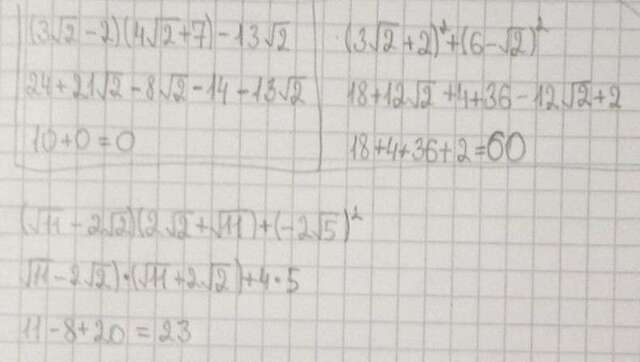 (3√2-2)(4√2+7)-13√2
24+21√2-8√2-14-13√2
10+0=0
(3√2+2)²+(6-√2)²
18+12√2+4+36-12√2+2
18+4+36+2=60
(√11-2√2)(2√2+√11)+(-2√5)²
√11-2√2)·(√11+2√2)+4·5
11-8+20=23